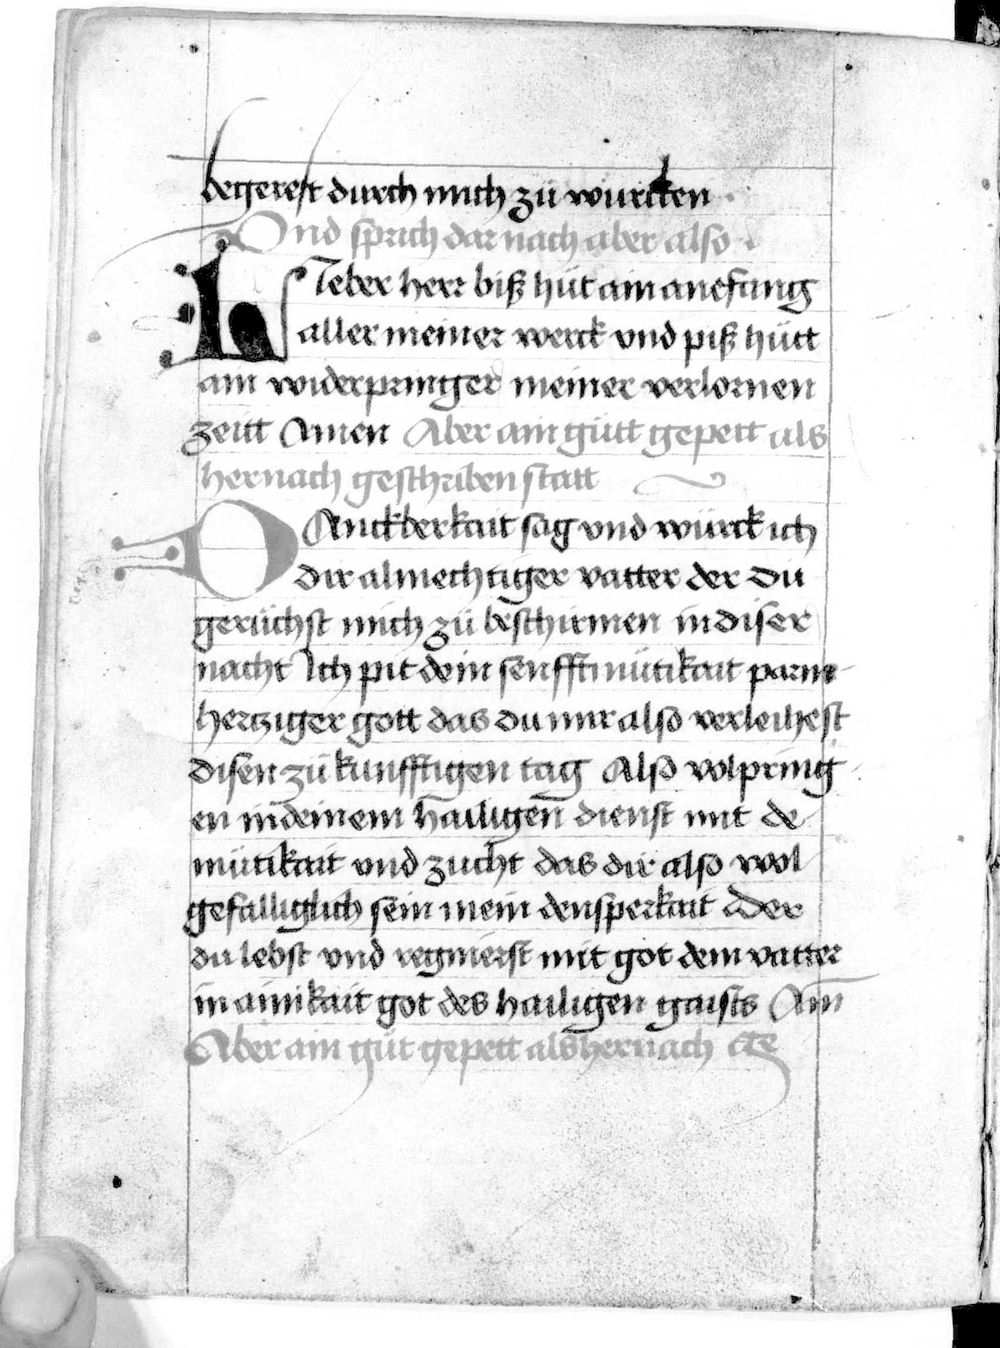 begerest durch mich zü würcken
Vnd sprich dar nach aber also
LIeber herr biß hüt ain anefang
aller meiner werck vnd piß hütt
ain widerpringer meiner verlornen
zeitt Amen Aber ain gütt gepett als
hernach geschriben statt
DAnckberkait sag vnd würck ich
dir almechtiger vatter der du
gerüchst mich zü beschirmen in diser
nacht Ich pit dein senfftmütikait parm
hertziger gott das du mir also verleihest
disen zü kunfftigen tag Also volpring
en in deinem hailigen dienst mit de
mütikait vnd zucht das dir also wol
gefalliglich sein mein densperkait Der
du lebst vnd regnierst mit got dem vatter
in ainikait got des hailigen gaists Am̄
Aber ain güt gepett als hernach